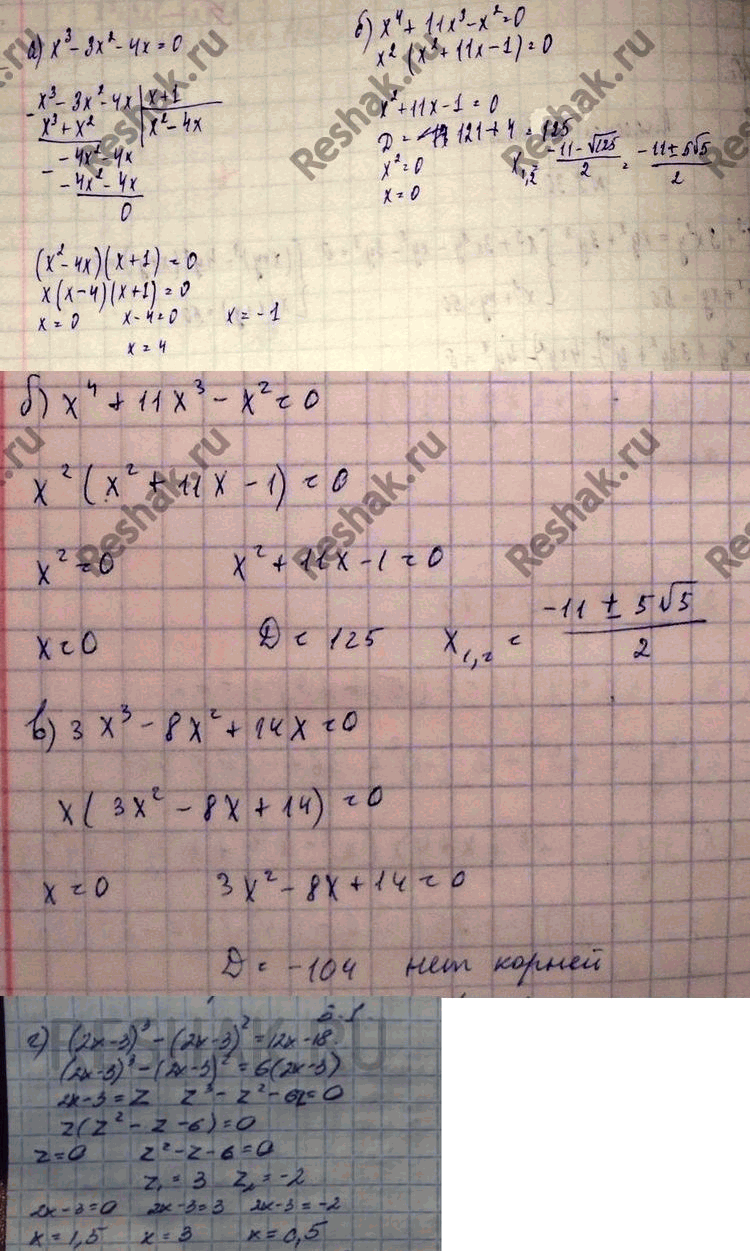 а) x³ - 3x² - 4x = 0
x³ - 3x² - 4x | x+1
x³ + x² | x² - 4x
- 4x² - 4x
- 4x² - 4x
0
(x² - 4x)(x+1) = 0
x(x-4)(x+1) = 0
x = 0 x-4=0 x = -1
x = 4
б) x⁴ + 11x³ - x² = 0
x² (x² + 11x - 1) = 0
x² + 11x - 1 = 0
D = 121 + 4 = 125
x² = 0
x = 0
x₁,₂ = (-11 - √125)/2 = (-11 ± 5√5)/2
б) x⁴ + 11x³ - x² = 0
x² (x² + 11x - 1) = 0
x² = 0 x² + 11x - 1 = 0
x = 0 D = 125 x₁,₂ = (-11 ± 5√5)/2
в) 3x³ - 8x² + 14x = 0
x(3x² - 8x + 14) = 0
x = 0 3x² - 8x + 14 = 0
D = -104 нет корней
г) (2x-3)³ - (2x-3)² = 12x - 18
(2x-3)³ - (2x-3)² = 6(2x-3)
2x-3 = z z³ - z² - 6z = 0
z(z² - z - 6) = 0
z = 0 z² - z - 6 = 0
z₁ = 3 z₂ = -2
2x-3 = 0 2x-3 = 3 2x-3 = -2
x = 1,5 x = 3 x = 0,5
Reshak.ru
Reshak.ru
Reshak.ru
Reshak.ru
Reshak.ru
Reshak.ru
RESHAK.RU